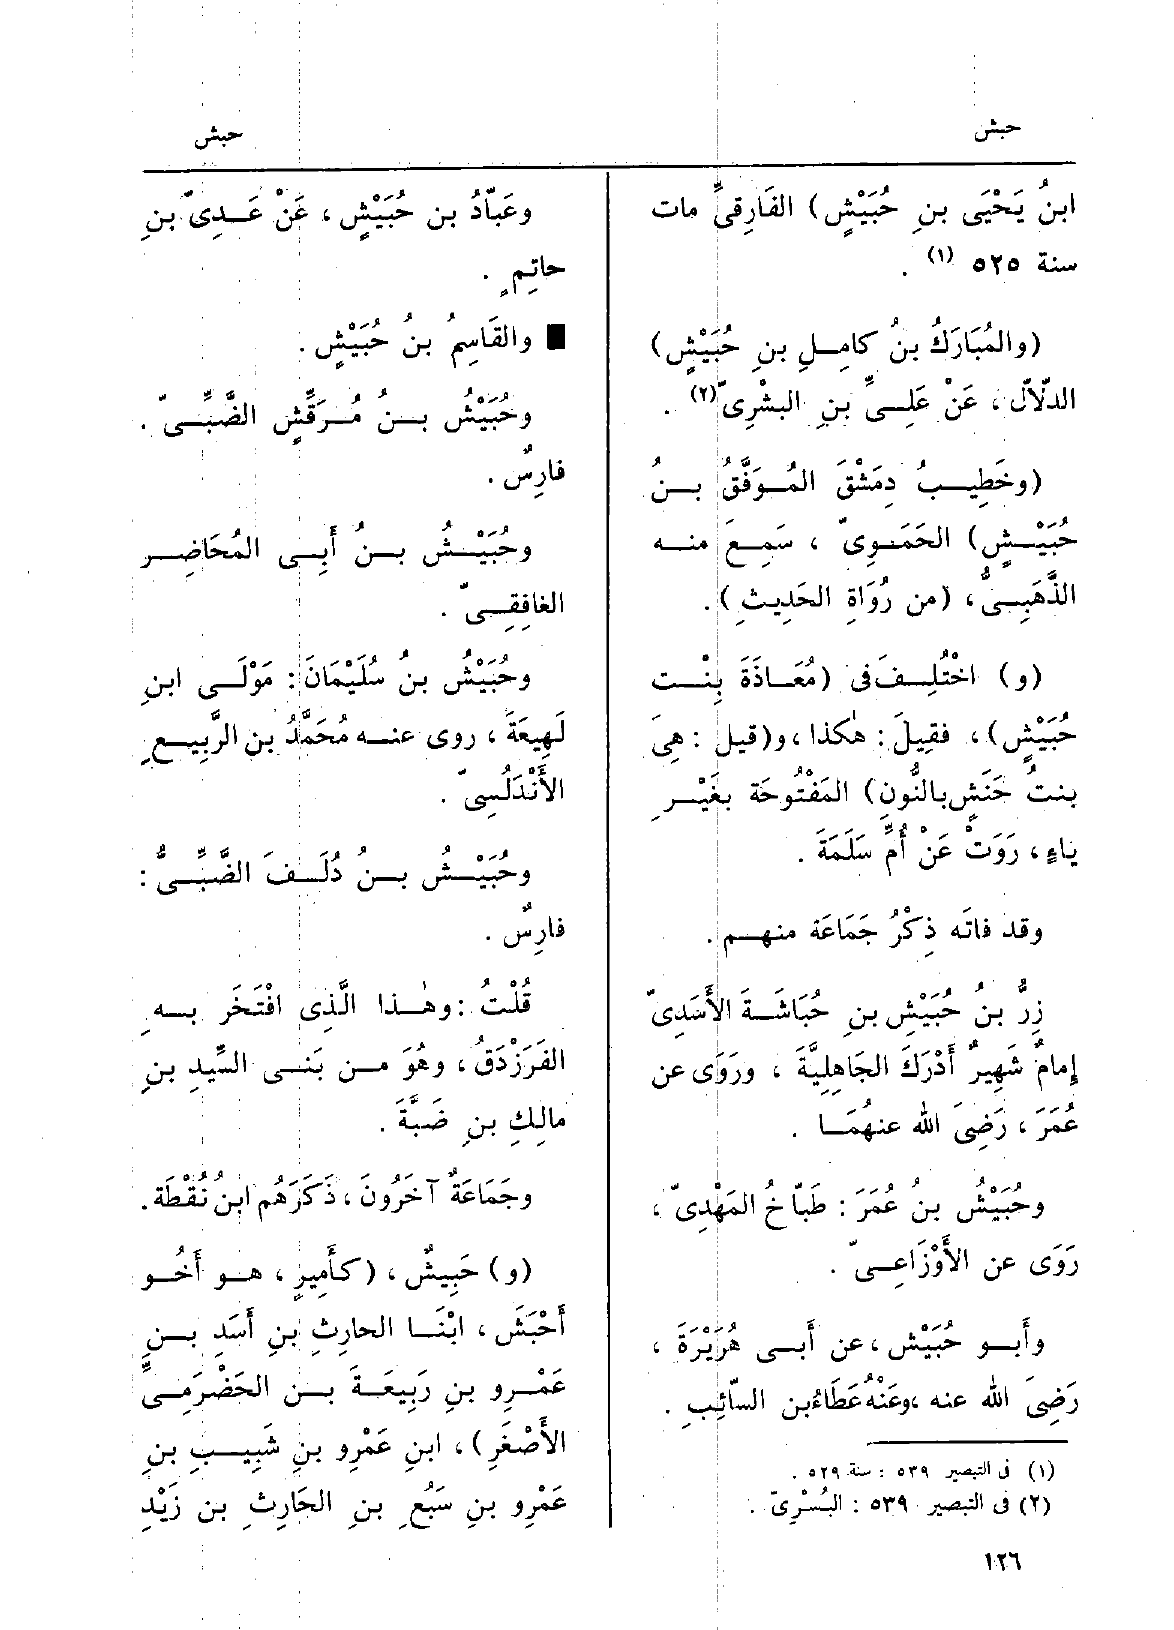 حبش
حبش
ابنُ يَحْيَى بنِ حُبَيْشٍ) الفَارِقىُّ مات
سنة ٥٢٥ (١) .
(والمُبَارَكُ بنُ كامِـلِ بنِ حُبَيْشٍ)
الدّلاّل ، عَنْ عَلِـىِّ بنِ البشْرِىّ(٢) .
(وخَطِيـبُ دِمَشْقَ المُـوَفَّقُ بـنُ
حُبَيْـشٍ) الحَمَـوِىّ ، سَمِـعَ منـه
الذَّهَبِـىُّ، (من رُوَاةِ الحَدِيثِ).
(و) اخْتُلِـفَ فى (مُعَـاذَةَ بِنْـت
حُبَيْشٍ)، فقِيلَ: هٰكذا ،و(قيل: هِىَ
بنتُ حَنَشٍ بالنُّونِ) المَفْتُوحَة بغَيْـرِ
ياءٍ، رَوَتْ عَنْ أُمِّ سَلَمَةَ .
وقد فاتَه ذِكْرُ جَمَاعَة منهـم .
زِرُّ بنُ حُبَيْشِ بنِ حُبَاشَـةَ الأَسَدِىّ
إِمامٌ شَهِيرٌ أَدْرَكَ الجَاهِلِيَّةَ ، ورَوَى عن
عُمَرَ ، رَضِىَ الله عنهُمَـا .
وحُبَيْشُ بنُ عُمَرَ : طَبّاخُ المَهْدِىّ ،
رَوَى عن الأَوْزَاعِـىّ .
وأَبـو حُبَيْش ،عن أَبـى هُرَيْرَةَ ،
رَضِىَ الله عنه ،وعَنْهُ عَطَاءُ بن السّائِبِ .
(١) فى التبصير ٥٣٩ : سنة ٥٢٩ .
(٢) فى التبصير ٥٣٩ : البُسْرِىّ .
١٢٦
وعَبّادُ بن حُبَيْشٍ ، عَنْ عَـدِىّ بنِ
حاتِمٍ .
■ والقَاسِمُ بنُ حُبَيْشٍ .
وحُبَيْشُ بـنُ مُـرَقِّشٍ الضَّبِّـىّ .
فارِسٌ .
وحُبَيْـشُ بـنُ أَبِـى المُحَاضِـر
الغافِقِـىّ .
وحُبَيْشُ بنُ سُلَيْمَانَ: مَوْلَـى ابنِ
لَهِيعَةَ ، روى عنـه مُحَمَّدُ بن الرَّبِيـعِ
الأَنْدَلُسِىّ .
وحُبَيْـشُ بـنُ دُلَـفَ الضَّبِّـىُّ :
فارِسٌ .
قُلْتُ :وهٰـذا الَّذِى افْتَخَر بـهِ
الفَرَزْدَقُ ، وهُوَ مـن بَنـى السِّيدِ بنِ
مالِكِ بنِ ضَبَّةَ .
وجَمَاعَةٌ آخَرُونَ ، ذَكَرَهُم ابنُ نُقْطَة.
(و) حَبِيشٌ ، (كأَمِيرٍ ، هـو أَخُـو
أَحْبَشَ ، ابْنَـا الحارِثِ بنِ أَسَدِ بـنِ
عَمْـرِو بنِ رَبِيعَـةَ بـن الحَضْرَمِـىِّ
الأَصْغَرِ)، ابنِ عَمْرِو بنِ شَبِيـبِ بنِ
عَمْرِو بنِ سَبُعِ بنِ الحَارِثِ بن زَيْدِ